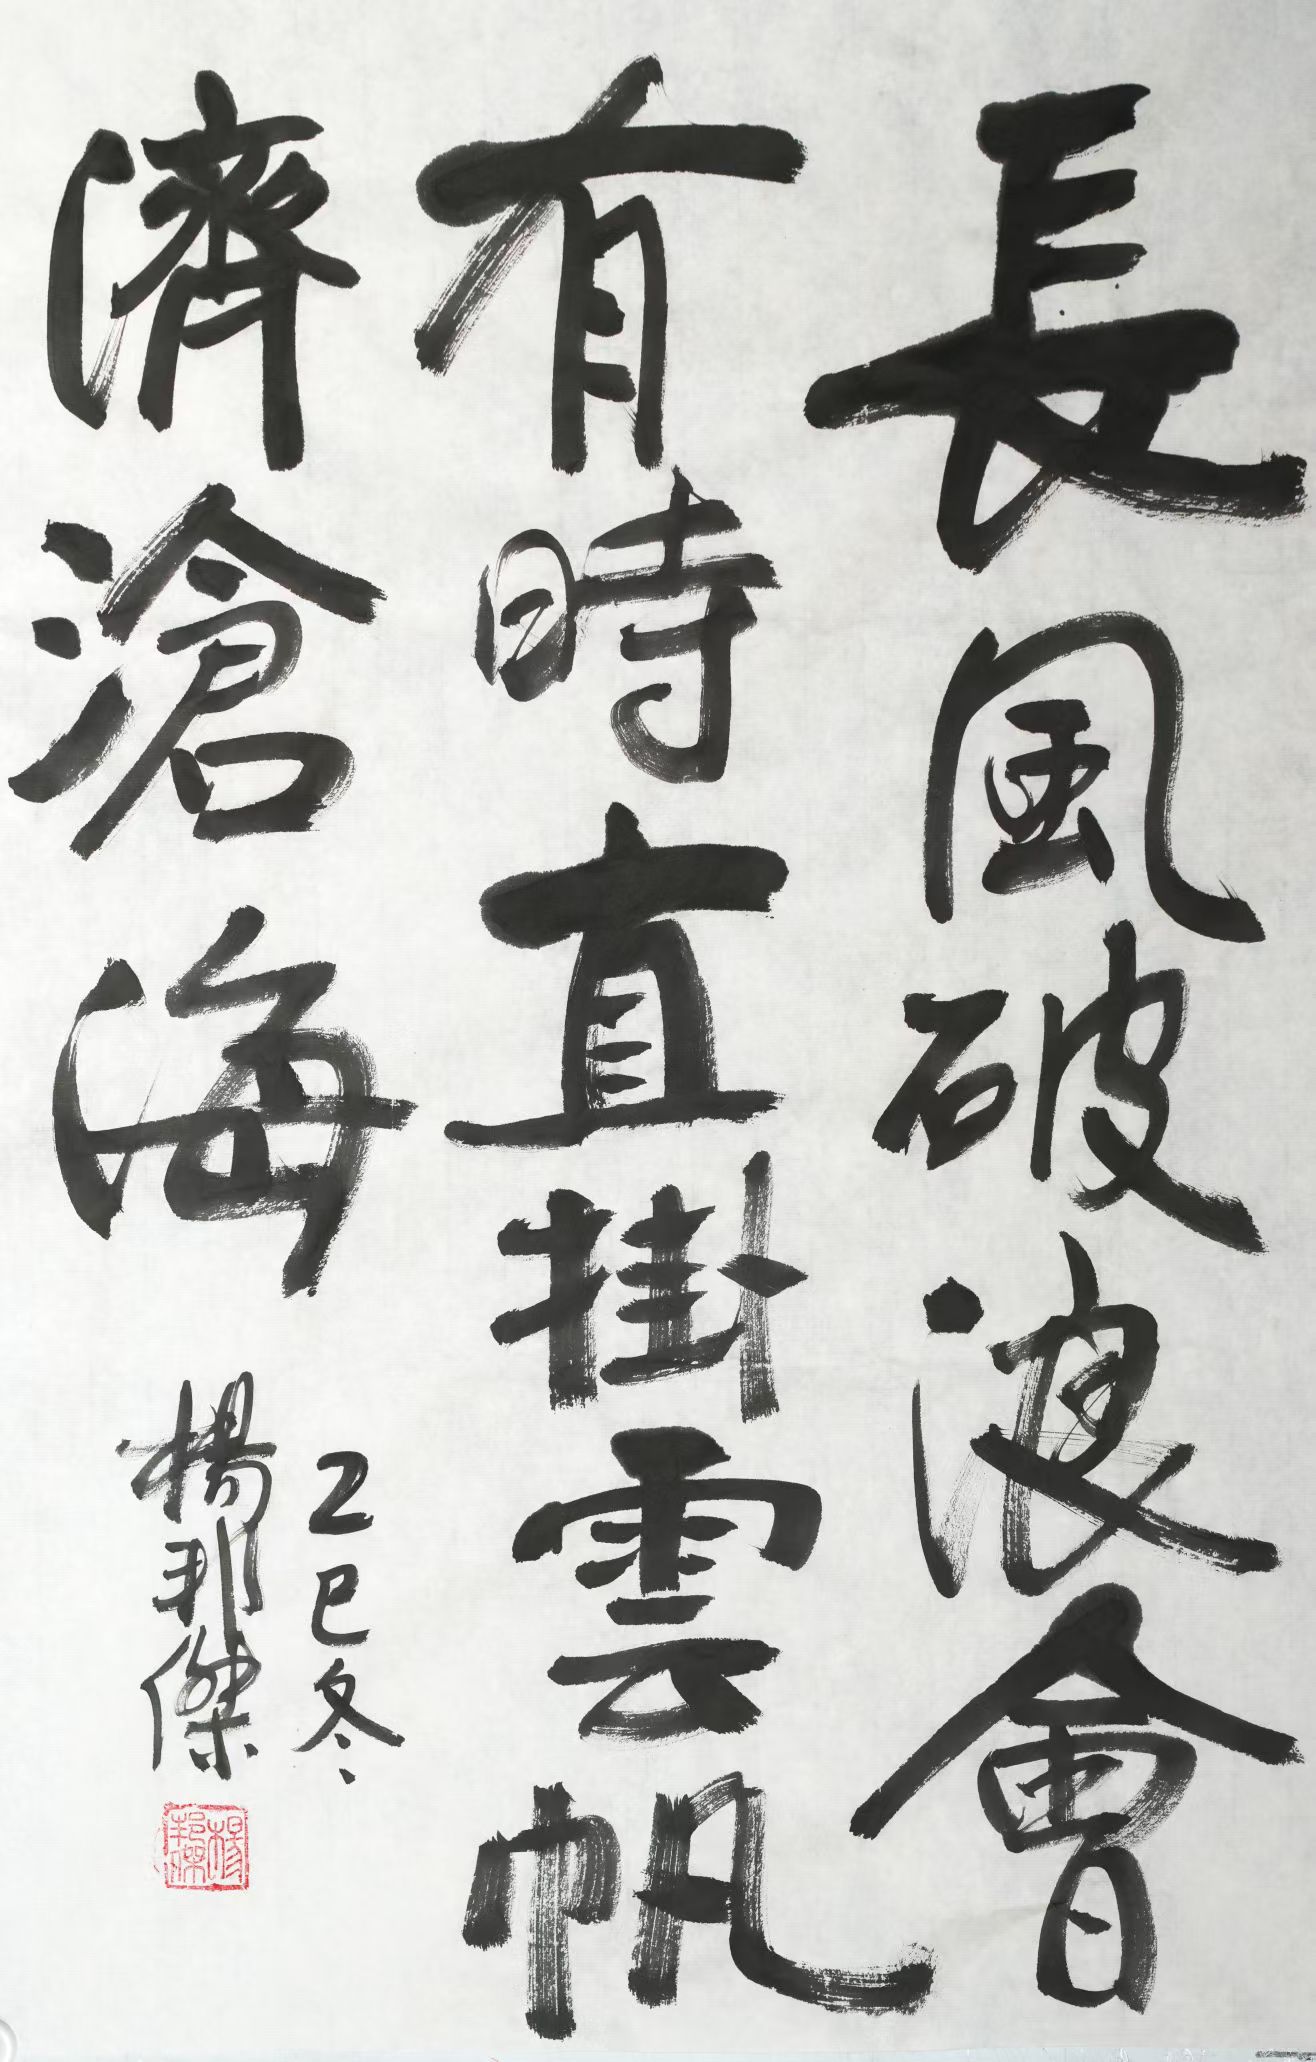 長風破浪會
有時直掛雲帆
濟滄海
乙巳冬
楊邦傑
楊邦傑